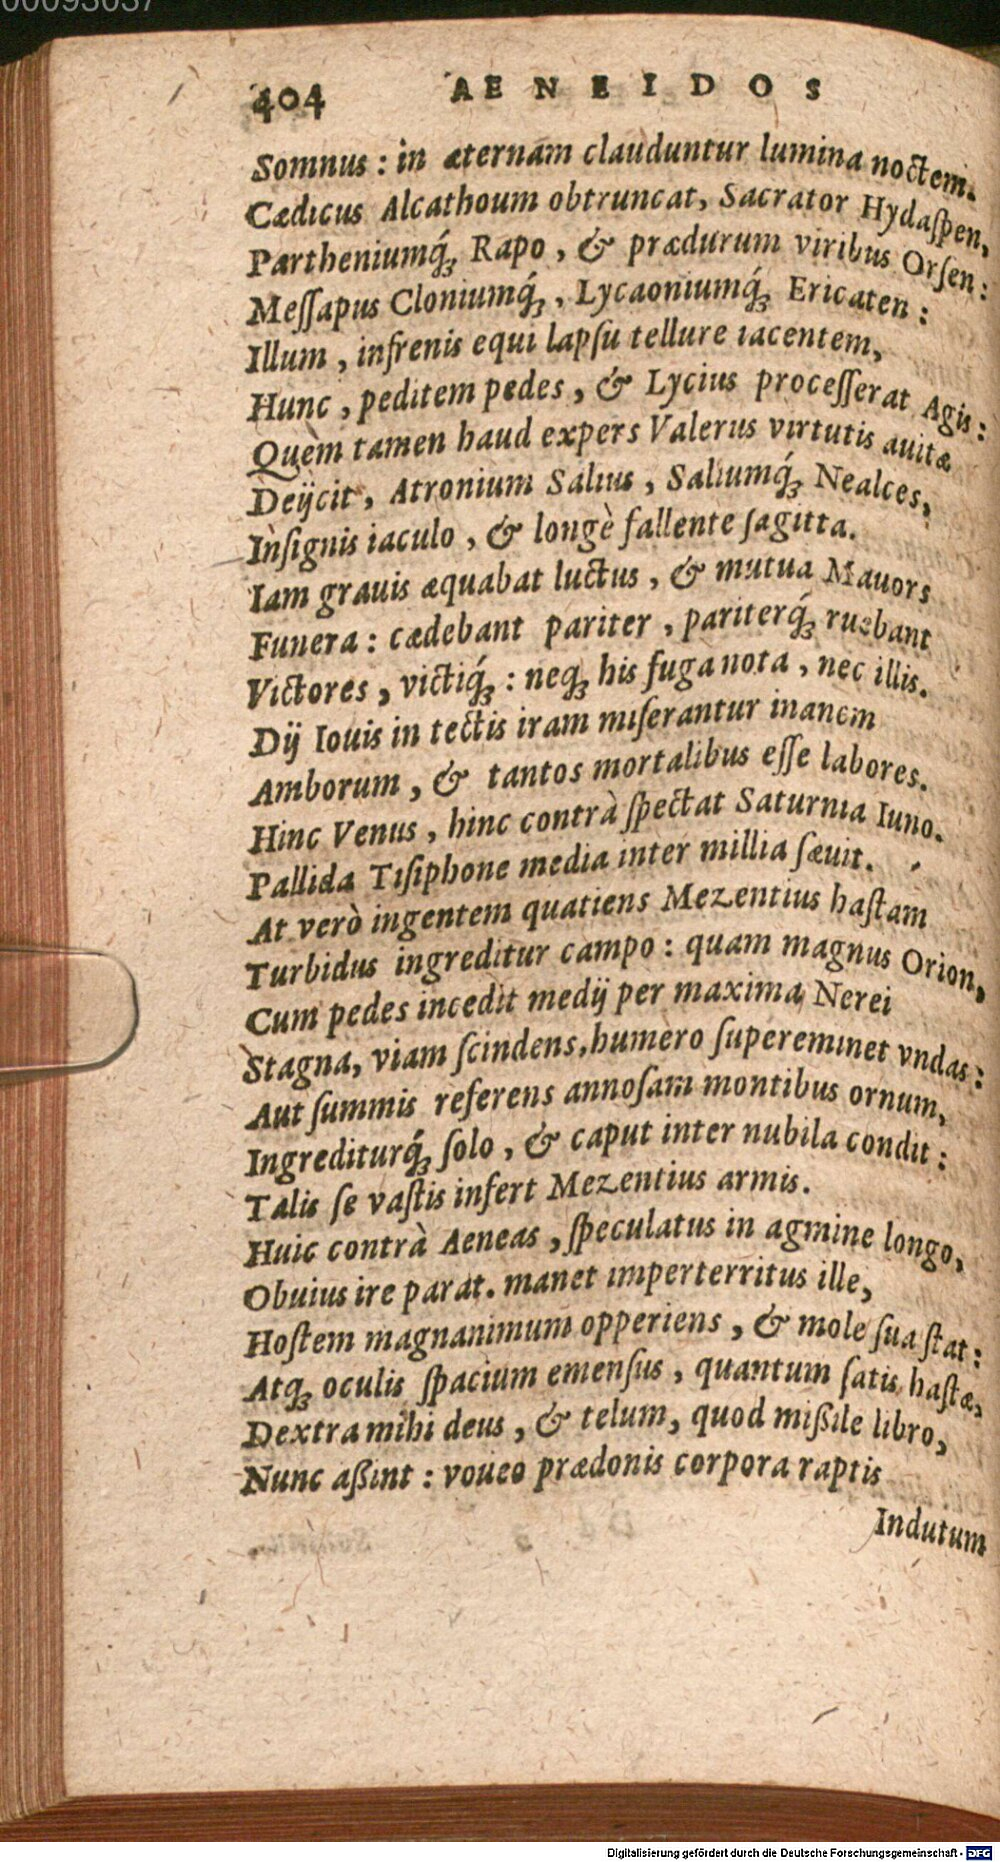 00093037
404 AENEIDOS
Somnus: in æternam clauduntur lumina noctem.
Cædicus Alcathoum obtruncat, Sacrator Hydaſpen,
Partheniumq́ꝫ Rapo, & prædurum viribus Orſen:
Meſſapus Cloniumq́ꝫ, Lycaoniumq́ꝫ Ericaten:
Illum, infrenis equi lapſu tellure iacentem,
Hunc, peditem pedes, & Lycius proceſſerat Agis:
Quem tamen haud expers Valerus virtutis auitæ
Deijcit, Atronium Salius, Saliumq́ꝫ Nealces,
Inſignis iaculo, & longè fallente ſagitta.
Iam grauis æquabat luctus, & mutua Mauors
Funera: cædebant pariter, pariterq́ꝫ ruebant
Victores, victiq́ꝫ: neqꝫ his fuga nota, nec illis.
Dij Iouis in tectis iram miſerantur inanem
Amborum, & tantos mortalibus eſſe labores.
Hinc Venus, hinc contrà ſpectat Saturnia Iuno.
Pallida Tiſiphone media inter millia ſæuit.
At verò ingentem quatiens Mezentius haſtam
Turbidus ingreditur campo: quam magnus Orion,
Cum pedes incedit medij per maxima Nerei
Stagna, viam ſcindens, humero ſupereminet vndas:
Aut ſummis referens annoſam montibus ornum,
Ingrediturq́ꝫ ſolo, & caput inter nubila condit:
Talis ſe vaſtis infert Mezentius armis.
Huic contrà Aeneas, ſpeculatus in agmine longo,
Obuius ire parat. manet imperterritus ille,
Hoſtem magnanimum opperiens, & mole ſua ſtat:
Atqꝫ oculis ſpacium emenſus, quantum ſatis haſtæ,
Dextra mihi deus, & telum, quod miſſile libro,
Nunc aſſint: voueo prædonis corpora raptis
Indutum
Digitalisierung gefördert durch die Deutsche Forschungsgemeinschaft - DFG